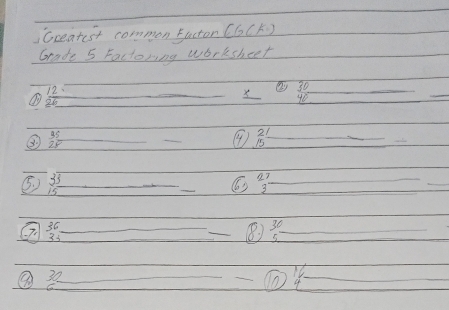 Greatest common Factor (GCF)
Grade 5 Factoring worksheet
① 12 ② 30
26 40
③ ④ 21
28 15
⑤ 33 ⑥ 27
15 3
⑦ 36 ⑧ 30
33 5
⑨ 30 ⑩ 16
6 4